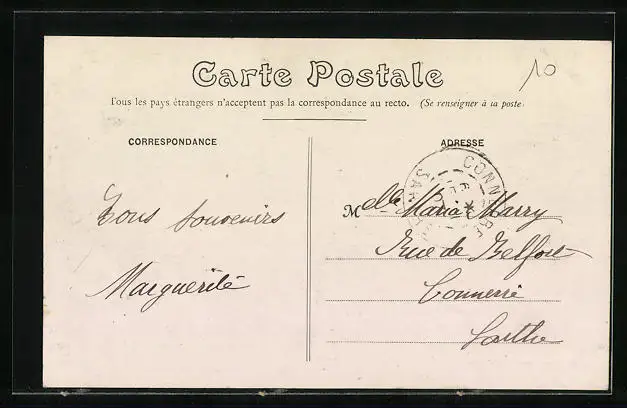 Carte Postale
10
Tous les pays étrangers n'acceptent pas la correspondance au recto. (Se renseigner à la poste
CORRESPONDANCE
ADRESSE
CONNERRE
SAR
Melle Maria Marry
Bons souvenirs
Rue de Belfort
Marguerite
Connerré
Sarthe